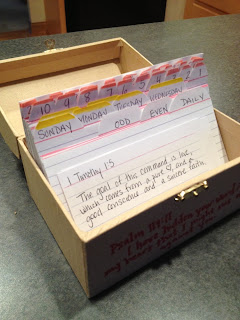 10 8 7
SUNDAY MONDAY TUESDAY WEDNESDAY
ODD EVEN DAILY
1 Timothy 1:5
The goal of this command is love,
which comes from a pure ♡ and a
good conscience and a sincere faith.
Psalm 119:11
I have
my heart